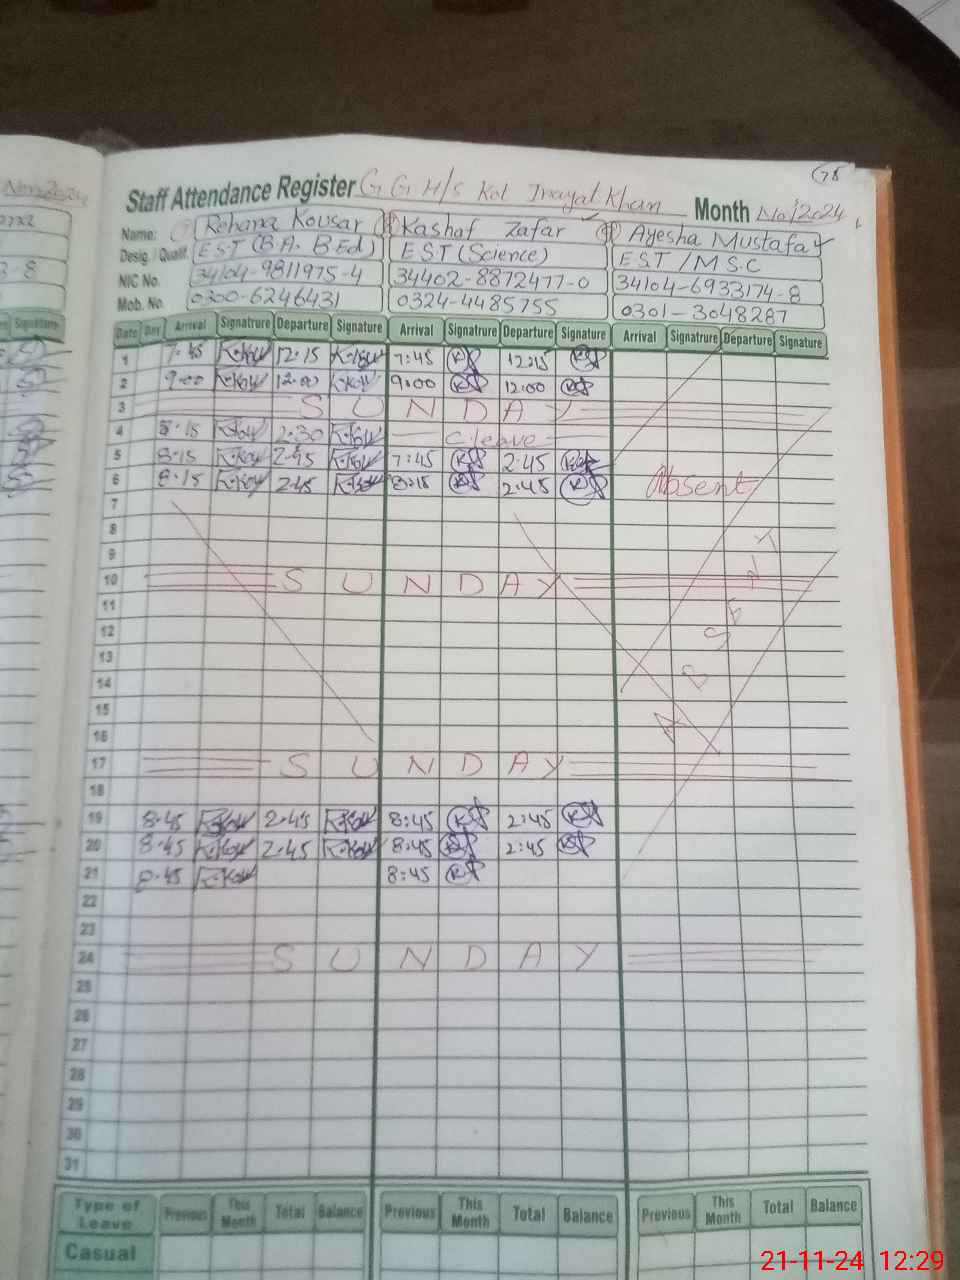 78
Staff Attendance Register G G H/S Kot Inayat Khan Month Nov 2024
Name: Rehana Kousar Kashaf Zafar Ayesha Mustafa
Desig. / Qualif. EST (B.A. B.Ed) EST (Science) EST / M.SC
NIC No. 34104-9811975-4 34402-8872477-0 34104-6933174-8
Mob. No. 0300-6246431 0324-4485755 0301-3048287
Date Day Arrival Signatrure Departure Signature Arrival Signatrure Departure Signature Arrival Signatrure Departure Signature
1 7:45 12:15 7:45 12:15
2 9:00 12:00 9:00 12:00
3 SUNDAY
4 8:15 2:30 C.leave
5 8:15 2:45 7:45 2:45
6 8:15 2:45 8:15 2:45 Absent
7
8
9
10 SUNDAY
11
12
13
14
15
16
ABSENT
17 SUNDAY
18
19 8:45 2:45 8:45 2:45
20 8:45 2:45 8:45 2:45
21 8:45 8:45
22
23
24 SUNDAY
25
26
27
28
29
30
31
Type of Leave Previous This Month Total Balance Previous This Month Total Balance Previous This Month Total Balance
Casual
21-11-24 12:29